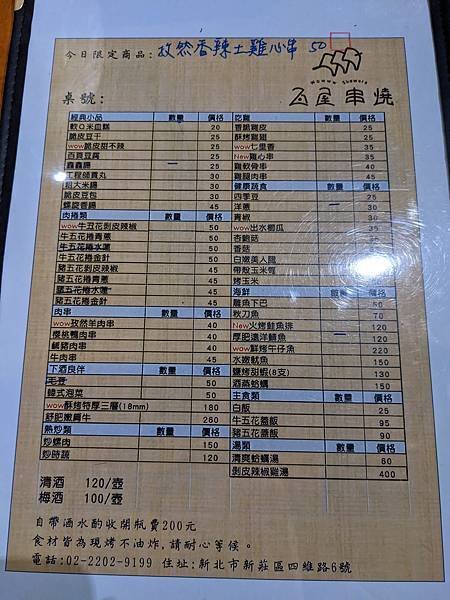 今日限定商品: 孜然香辣土雞心串 50
瓦屋串燒
桌號:
經典小品 數量 價格
軟Q米血糕 20
脆皮豆干 25
wow脆皮甜不辣 25
百頁豆腐 25
鑫鑫腸 25
工程師貢丸 30
超大米腸 30
脆皮豆包 30
螺旋香腸 45
肉捲類 數量 價格
wow牛五花剥皮辣椒 50
牛五花捲青蔥 50
牛五花捲水蓮 50
牛五花捲金針 50
豬五花剥皮辣椒 45
豬五花捲青蔥 45
豬五花捲水蓮 50
豬五花捲金針 45
肉串 數量 價格
wow孜然羊肉串 40
櫻桃鴨肉串 40
鹹豬肉串 40
牛肉串 45
下酒良伴 數量 價格
毛豆 50
韓式泡菜 50
wow酥烤特厚三層(18mm) 180
舒肥嫩肩牛 260
熱炒類 數量 價格
炒螺肉 150
炒時蔬 120
吃雞 數量 價格
香脆雞皮 25
酥烤雞翅 25
wow七里香 35
New雞心串 35
雞軟骨串 40
雞腿肉串 45
健康蔬食 數量 價格
四季豆 25
洋蔥 30
青椒 30
wow出水櫛瓜 35
杏鮑菇
香菇
白嫩美人腿
帶殼玉米筍
烤玉米
海鮮 數量 價格
龍魚下巴 50
秋刀魚 70
New火烤鮭魚排 120
厚肥遠洋鯖魚 120
wow鮮烤午仔魚 220
水嫩魷魚 150
鹽烤甜蝦(8支) 130
酒蒸蛤蠣 150
主食類 數量 價格
白飯 25
牛五花蓋飯 95
豬五花蓋飯 90
湯類 數量 價格
清爽蛤蠣湯 60
剥皮辣椒雞湯 400
清酒 120/壺
梅酒 100/壺
自帶酒水酌收開瓶費200元
食材皆為現烤不油炸,請耐心等侯。
電話:02-2202-9199 住址:新北市新莊區四維路6號